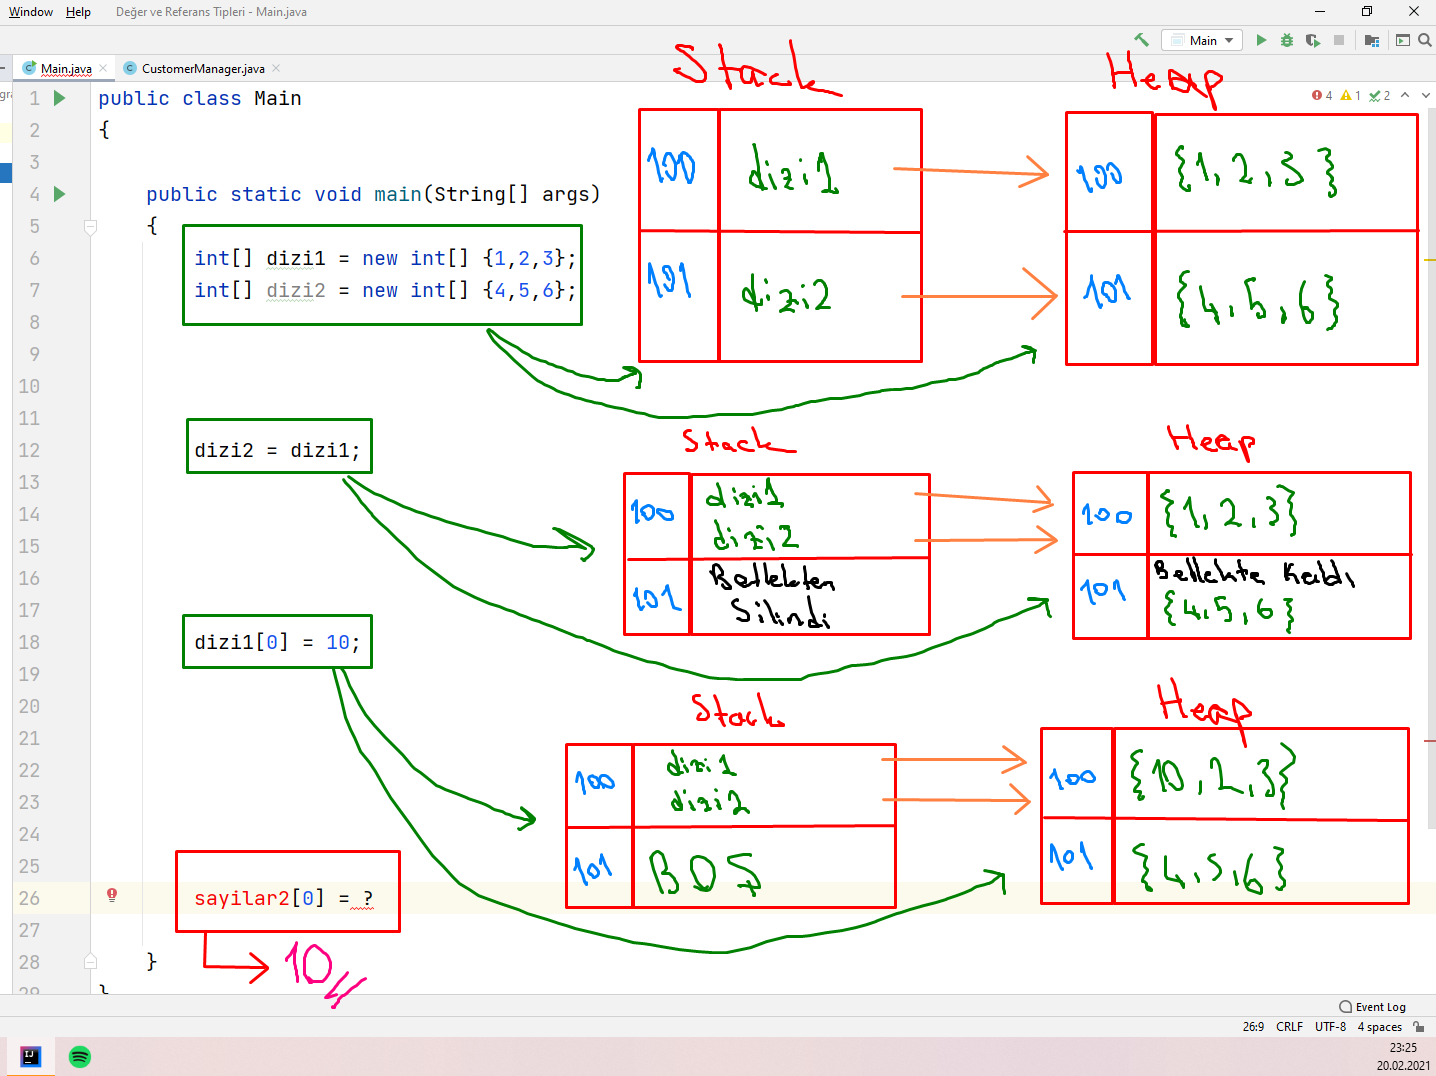 Window Help Değer ve Referans Tipleri - Main.java
Main
Main.java CustomerManager.java
4 1 2
gra
1 public class Main
2 {
3
4 public static void main(String[] args)
5 {
6 int[] dizi1 = new int[] {1,2,3};
7 int[] dizi2 = new int[] {4,5,6};
8
9
10
11
12 dizi2 = dizi1;
13
14
15
16
17
18 dizi1[0] = 10;
19
20
21
22
23
24
25
26 sayilar2[0] = ?
27
28 }
29 }
10
Stack Heap
100 dizi1 100 {1,2,3}
101 dizi2 101 {4,5,6}
Stack Heap
100 dizi1 100 {1,2,3}
dizi2
101 Bellekten 101 Bellekte Kaldı
Silindi {4,5,6}
Stack Heap
100 dizi1 100 {10,2,3}
dizi2
101 BOŞ 101 {4,5,6}
Event Log
26:9 CRLF UTF-8 4 spaces
IJ
23:25
20.02.2021